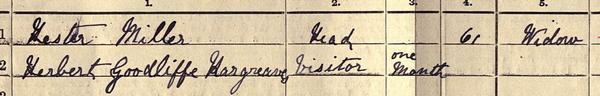 1. 2. 3. 4. 5.
1 Hester Miller Head 61 Widow
2 Herbert Goodliffe Hargreaves Visitor one Month